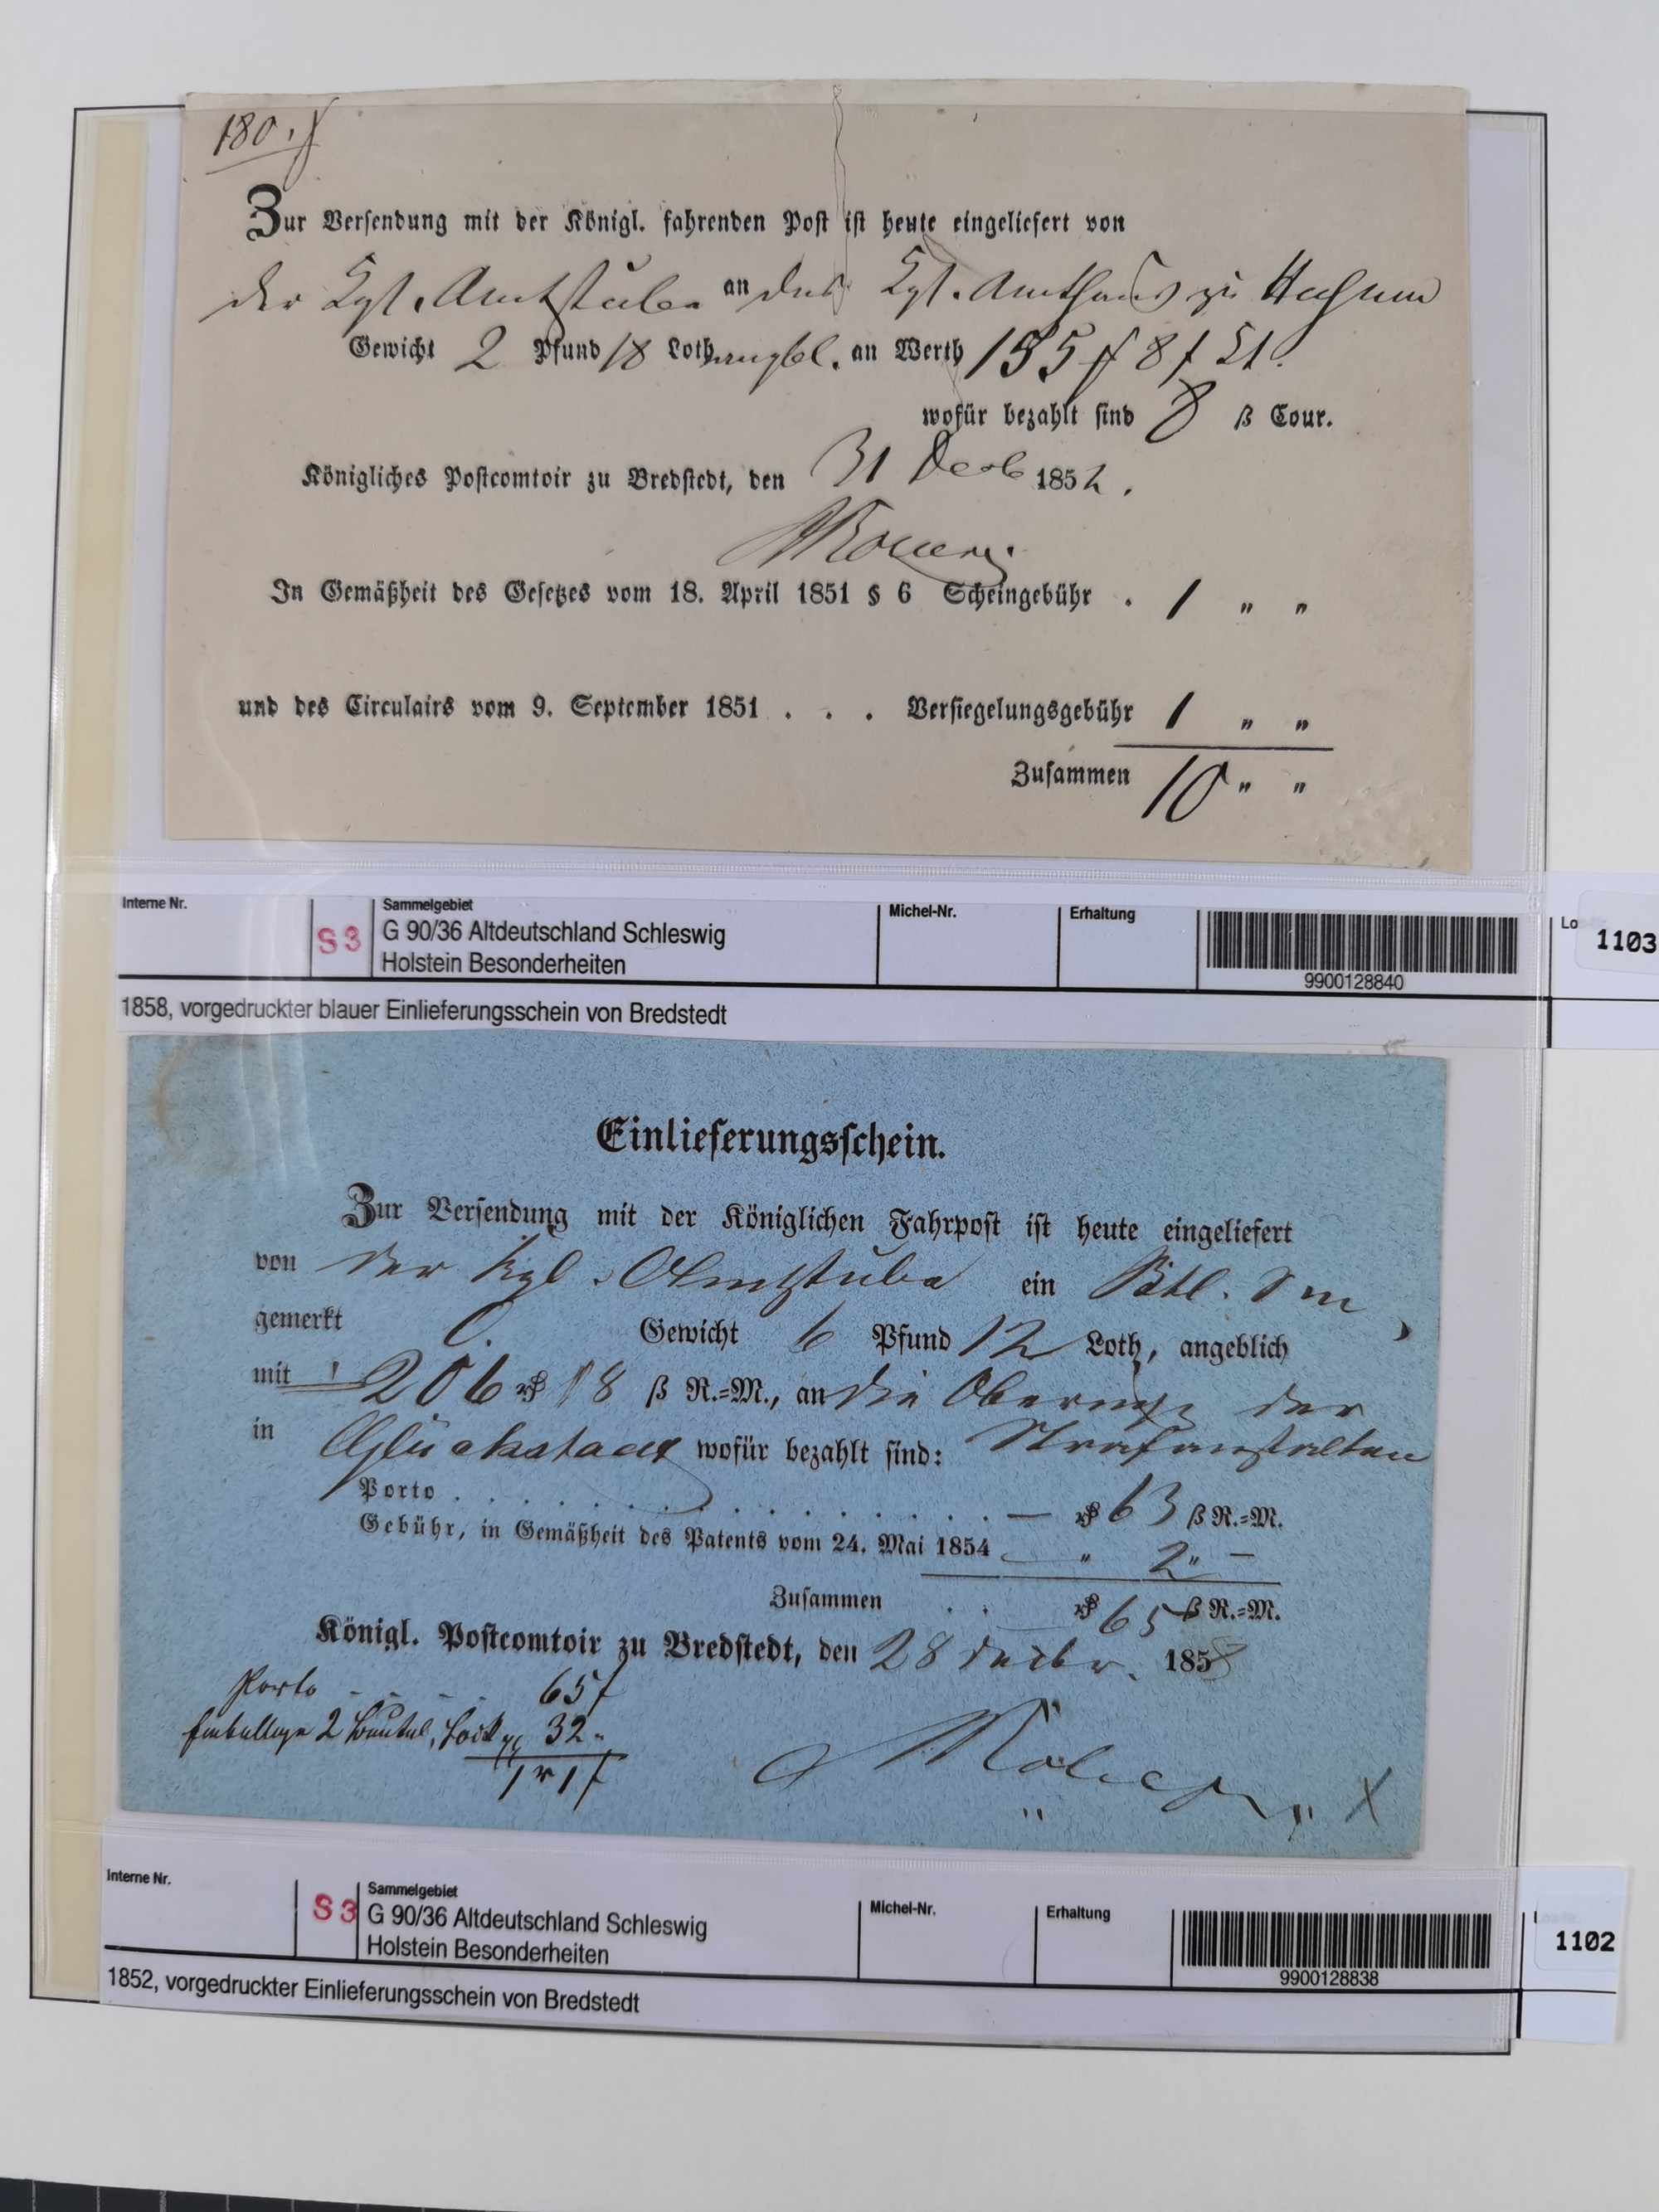 180.
Zur Versendung mit der Königl. fahrenden Post ist heute eingeliefert von
der Kgl. Amtstube an das Kgl. Amthaus zu Husum
Gewicht 2 Pfund 18 Loth angbl. an Werth 155 8
wofür bezahlt sind 8 ß Cour.
Königliches Postcomtoir zu Bredstedt, den 31 Decb 1852.
In Gemäßheit des Gesetzes vom 18. April 1851 § 6 Scheingebühr . 1 " "
und des Circulairs vom 9. September 1851 . . . Versiegelungsgebühr 1 " "
Zusammen 10 " "
Interne Nr.
S3
Sammelgebiet
G 90/36 Altdeutschland Schleswig
Holstein Besonderheiten
Michel-Nr.
Erhaltung
9900128840
1103
1858, vorgedruckter blauer Einlieferungsschein von Bredstedt
Einlieferungsschein.
Zur Versendung mit der Königlichen Fahrpost ist heute eingeliefert
von der Kgl. Amtstube ein Btl.
gemerkt C. Gewicht 6 Pfund 12 Loth, angeblich
mit 206 18 ß R.=M., an die der
in Glückstadt wofür bezahlt sind: Strafanstalten
Porto . . . . . . . . . . . — 63 ß R.=M.
Gebühr, in Gemäßheit des Patents vom 24. Mai 1854 — " 2 " —
Zusammen . . 65 ß R.=M.
Königl. Postcomtoir zu Bredstedt, den 28 Decbr. 1858
Porto - - - - 65
Emballage 2 Beutel, 32 "
Interne Nr.
S3
Sammelgebiet
G 90/36 Altdeutschland Schleswig
Holstein Besonderheiten
Michel-Nr.
Erhaltung
9900128838
1102
1852, vorgedruckter Einlieferungsschein von Bredstedt